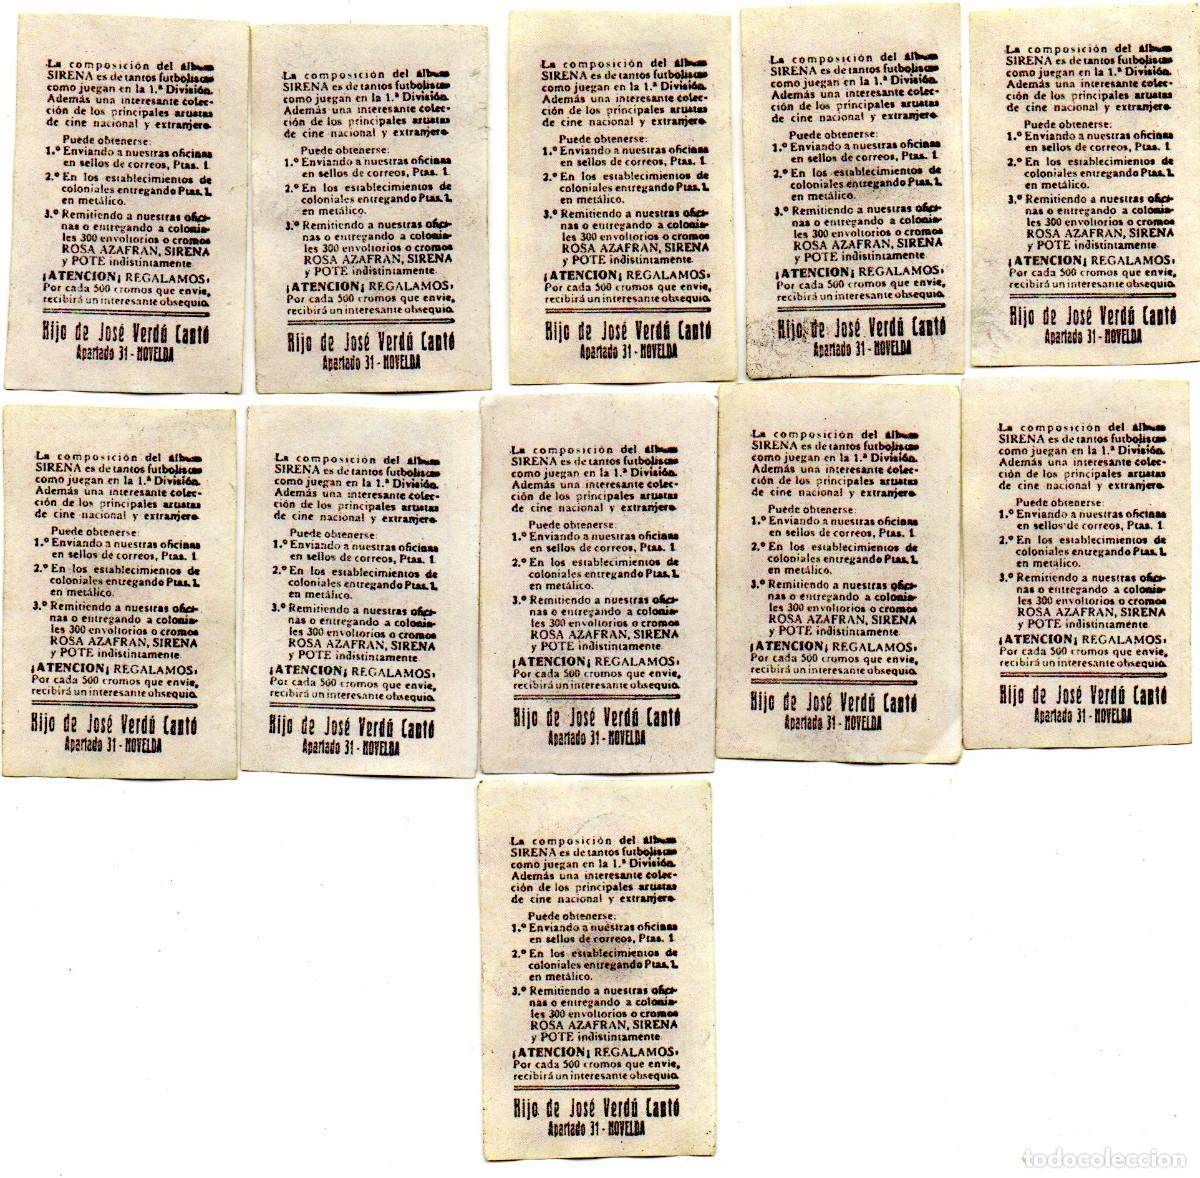 La composición del álbum
SIRENA es de tantos futbolistas
como juegan en la 1.ª División.
Además una interesante colec-
ción de los principales artistas
de cine nacional y extranjero.
Puede obtenerse:
1.º Enviando a nuestras oficinas
en sellos de correos, Ptas. 1
2.º En los establecimientos de
coloniales entregando Ptas. 1,
en metálico.
3.º Remitiendo a nuestras ofici-
nas o entregando a colonia-
les 300 envoltorios o cromos
ROSA AZAFRAN, SIRENA
y POTE indistintamente.
¡ATENCION¡ REGALAMOS,
Por cada 500 cromos que envie,
recibirá un interesante obsequio.
Hijo de José Verdú Cantó
Apartado 31 - NOVELDA
La composición del álbum
SIRENA es de tantos futbolistas
como juegan en la 1.ª División.
Además una interesante colec-
ción de los principales artistas
de cine nacional y extranjero.
Puede obtenerse:
1.º Enviando a nuestras oficinas
en sellos de correos, Ptas. 1
2.º En los establecimientos de
coloniales entregando Ptas. 1,
en metálico.
3.º Remitiendo a nuestras ofici-
nas o entregando a colonia-
les 300 envoltorios o cromos
ROSA AZAFRAN, SIRENA
y POTE indistintamente.
¡ATENCION¡ REGALAMOS,
Por cada 500 cromos que envie,
recibirá un interesante obsequio.
Hijo de José Verdú Cantó
Apartado 31 - NOVELDA
La composición del álbum
SIRENA es de tantos futbolistas
como juegan en la 1.ª División.
Además una interesante colec-
ción de los principales artistas
de cine nacional y extranjero.
Puede obtenerse:
1.º Enviando a nuestras oficinas
en sellos de correos, Ptas. 1
2.º En los establecimientos de
coloniales entregando Ptas. 1,
en metálico.
3.º Remitiendo a nuestras ofici-
nas o entregando a colonia-
les 300 envoltorios o cromos
ROSA AZAFRAN, SIRENA
y POTE indistintamente.
¡ATENCION¡ REGALAMOS,
Por cada 500 cromos que envie,
recibirá un interesante obsequio.
Hijo de José Verdú Cantó
Apartado 31 - NOVELDA
La composición del álbum
SIRENA es de tantos futbolistas
como juegan en la 1.ª División.
Además una interesante colec-
ción de los principales artistas
de cine nacional y extranjero.
Puede obtenerse:
1.º Enviando a nuestras oficinas
en sellos de correos, Ptas. 1
2.º En los establecimientos de
coloniales entregando Ptas. 1,
en metálico.
3.º Remitiendo a nuestras ofici-
nas o entregando a colonia-
les 300 envoltorios o cromos
ROSA AZAFRAN, SIRENA
y POTE indistintamente.
¡ATENCION¡ REGALAMOS,
Por cada 500 cromos que envie,
recibirá un interesante obsequio.
Hijo de José Verdú Cantó
Apartado 31 - NOVELDA
La composición del álbum
SIRENA es de tantos futbolistas
como juegan en la 1.ª División.
Además una interesante colec-
ción de los principales artistas
de cine nacional y extranjero.
Puede obtenerse:
1.º Enviando a nuestras oficinas
en sellos de correos, Ptas. 1
2.º En los establecimientos de
coloniales entregando Ptas. 1,
en metálico.
3.º Remitiendo a nuestras ofici-
nas o entregando a colonia-
les 300 envoltorios o cromos
ROSA AZAFRAN, SIRENA
y POTE indistintamente.
¡ATENCION¡ REGALAMOS,
Por cada 500 cromos que envie,
recibirá un interesante obsequio.
Hijo de José Verdú Cantó
Apartado 31 - NOVELDA
La composición del álbum
SIRENA es de tantos futbolistas
como juegan en la 1.ª División.
Además una interesante colec-
ción de los principales artistas
de cine nacional y extranjero.
Puede obtenerse:
1.º Enviando a nuestras oficinas
en sellos de correos, Ptas. 1
2.º En los establecimientos de
coloniales entregando Ptas. 1,
en metálico.
3.º Remitiendo a nuestras ofici-
nas o entregando a colonia-
les 300 envoltorios o cromos
ROSA AZAFRAN, SIRENA
y POTE indistintamente.
¡ATENCION¡ REGALAMOS,
Por cada 500 cromos que envie,
recibirá un interesante obsequio.
Hijo de José Verdú Cantó
Apartado 31 - NOVELDA
La composición del álbum
SIRENA es de tantos futbolistas
como juegan en la 1.ª División.
Además una interesante colec-
ción de los principales artistas
de cine nacional y extranjero.
Puede obtenerse:
1.º Enviando a nuestras oficinas
en sellos de correos, Ptas. 1
2.º En los establecimientos de
coloniales entregando Ptas. 1,
en metálico.
3.º Remitiendo a nuestras ofici-
nas o entregando a colonia-
les 300 envoltorios o cromos
ROSA AZAFRAN, SIRENA
y POTE indistintamente.
¡ATENCION¡ REGALAMOS,
Por cada 500 cromos que envie,
recibirá un interesante obsequio.
Hijo de José Verdú Cantó
Apartado 31 - NOVELDA
La composición del álbum
SIRENA es de tantos futbolistas
como juegan en la 1.ª División.
Además una interesante colec-
ción de los principales artistas
de cine nacional y extranjero.
Puede obtenerse:
1.º Enviando a nuestras oficinas
en sellos de correos, Ptas. 1
2.º En los establecimientos de
coloniales entregando Ptas. 1,
en metálico.
3.º Remitiendo a nuestras ofici-
nas o entregando a colonia-
les 300 envoltorios o cromos
ROSA AZAFRAN, SIRENA
y POTE indistintamente.
¡ATENCION¡ REGALAMOS,
Por cada 500 cromos que envie,
recibirá un interesante obsequio.
Hijo de José Verdú Cantó
Apartado 31 - NOVELDA
La composición del álbum
SIRENA es de tantos futbolistas
como juegan en la 1.ª División.
Además una interesante colec-
ción de los principales artistas
de cine nacional y extranjero.
Puede obtenerse:
1.º Enviando a nuestras oficinas
en sellos de correos, Ptas. 1
2.º En los establecimientos de
coloniales entregando Ptas. 1,
en metálico.
3.º Remitiendo a nuestras ofici-
nas o entregando a colonia-
les 300 envoltorios o cromos
ROSA AZAFRAN, SIRENA
y POTE indistintamente.
¡ATENCION¡ REGALAMOS,
Por cada 500 cromos que envie,
recibirá un interesante obsequio.
Hijo de José Verdú Cantó
Apartado 31 - NOVELDA
La composición del álbum
SIRENA es de tantos futbolistas
como juegan en la 1.ª División.
Además una interesante colec-
ción de los principales artistas
de cine nacional y extranjero.
Puede obtenerse:
1.º Enviando a nuestras oficinas
en sellos de correos, Ptas. 1
2.º En los establecimientos de
coloniales entregando Ptas. 1,
en metálico.
3.º Remitiendo a nuestras ofici-
nas o entregando a colonia-
les 300 envoltorios o cromos
ROSA AZAFRAN, SIRENA
y POTE indistintamente.
¡ATENCION¡ REGALAMOS,
Por cada 500 cromos que envie,
recibirá un interesante obsequio.
Hijo de José Verdú Cantó
Apartado 31 - NOVELDA
La composición del álbum
SIRENA es de tantos futbolistas
como juegan en la 1.ª División.
Además una interesante colec-
ción de los principales artistas
de cine nacional y extranjero.
Puede obtenerse:
1.º Enviando a nuestras oficinas
en sellos de correos, Ptas. 1
2.º En los establecimientos de
coloniales entregando Ptas. 1,
en metálico.
3.º Remitiendo a nuestras ofici-
nas o entregando a colonia-
les 300 envoltorios o cromos
ROSA AZAFRAN, SIRENA
y POTE indistintamente.
¡ATENCION¡ REGALAMOS,
Por cada 500 cromos que envie,
recibirá un interesante obsequio.
Hijo de José Verdú Cantó
Apartado 31 - NOVELDA
todocoleccion